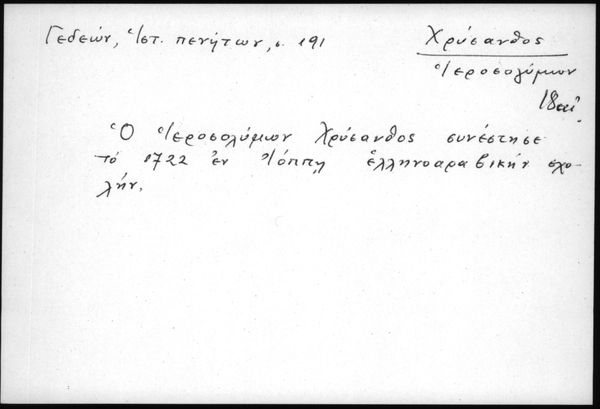 Γεδεών, Ἱστ. πενήτων, σ. 191
Χρύσανθος
Ἱεροσολύμων
18 αἰ.
Ὁ Ἱεροσολύμων Χρύσανθος συνέστησε
τὸ 1722 ἐν Ἰόππῃ ἑλληνοαραβικὴν σχο-
λήν.